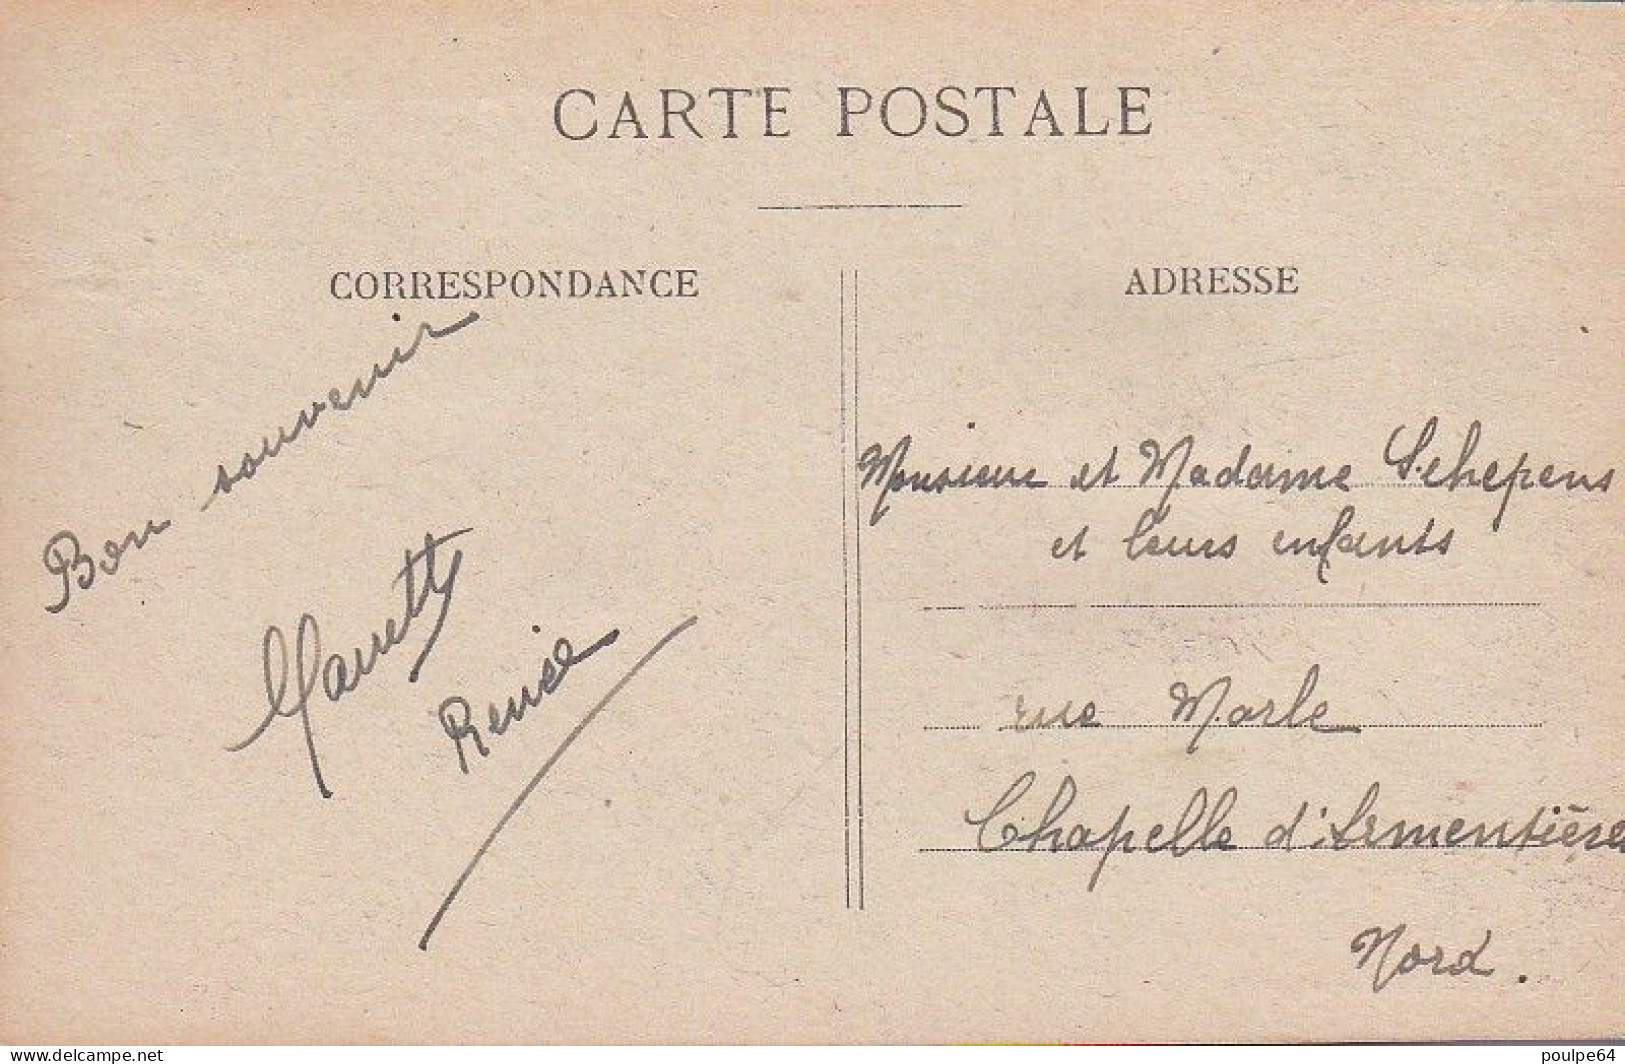 CARTE POSTALE
CORRESPONDANCE
Bon souvenir
Renée
ADRESSE
Monsieur et Madame Schepens
et leurs enfants
rue Marle
Chapelle d'Armentières
Nord.
www.delcampe.net
poulpe64